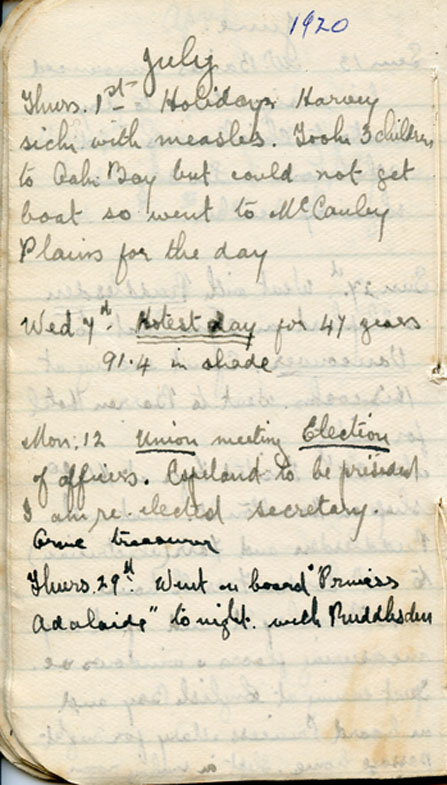 1920
July
Thurs. 1st Holidays Harvey
sick with measles. Took 3 children
to Oak Bay but could not get
boat so went to McCauley
Plains for the day
Wed 7th Hotest day for 47 years
91.4 in shade
Mon: 12 Union meeting Election
of officers. Copeland to be president
I am re-elected secretary.
treasurer
Thurs. 29th Went on board "Princess
Adalaide" to night. with Ruddlesden